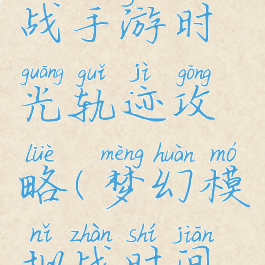 战手游时
guāng guǐ jì gōng
光轨迹攻
lüè mèng huàn mó
略(梦幻模
nǐ zhàn shí jiān
拟战时间